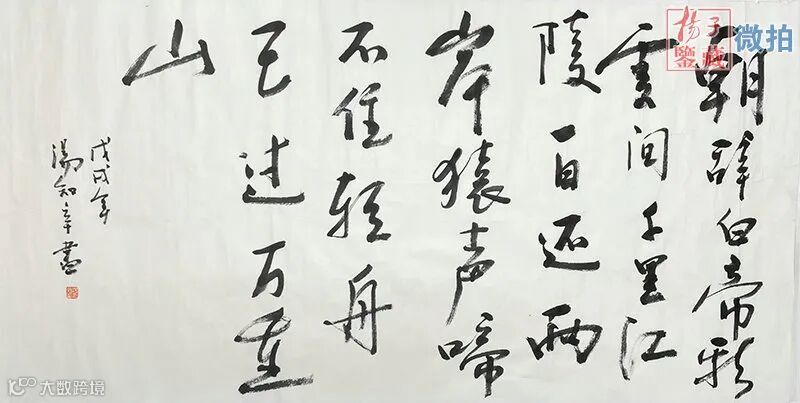 朝辞白帝彩
雲间千里江
陵一日还两
岸猿声啼
不住轻舟
已过万重
山
戊戌年
湯知書
揚子鑒藏
微拍
大数跨境